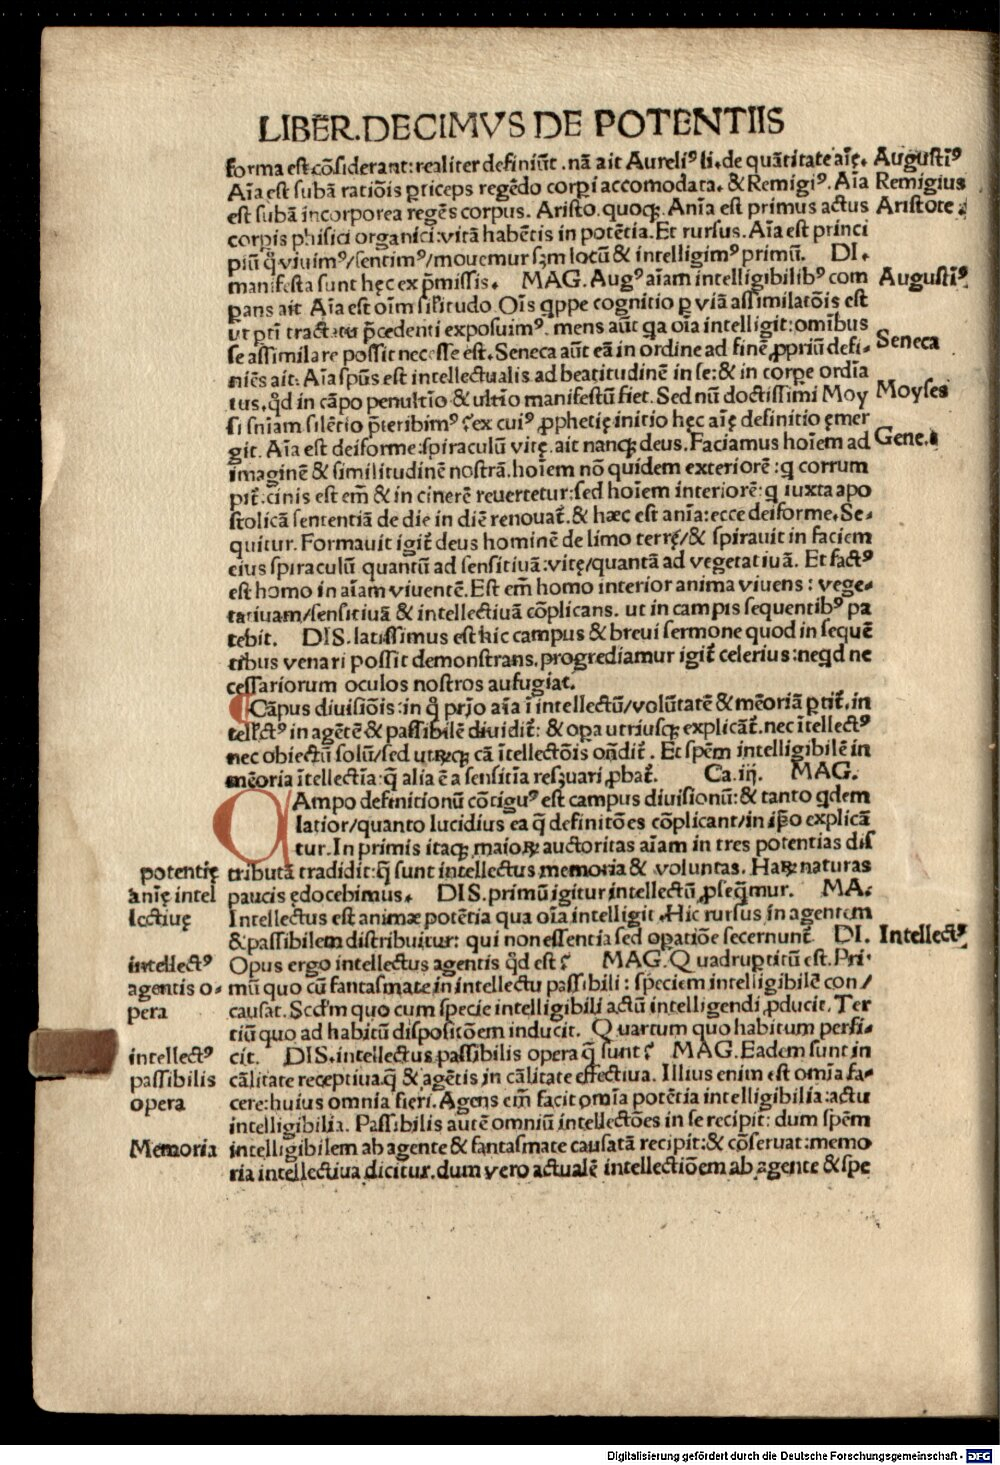 LIBER.DECIMVS DE POTENTIIS
forma est cōſiderant: realiter definiūt .nā ait Aureliꝰ li.de quātitate aīę. Auguſtīꝰ
Aīa eſt ſubā ratiōis ꝑticeps regēdo corpi accomodata. & Remigiꝰ. Aīa Remigius
eſt ſubā incorporea regēs corpus. Ariſto.quoqꝫ. Anīa eſt primus actus Ariſtote.
corpis phiſici organici:vitā habētis in potētia.Et rurſus. Aīa eſt princi
piū q̄ viuimꝰ/ſentimꝰ/mouemur ſꝫm locū & intelligimꝰ primū. DI.
manifeſta ſunt hęc ex p̄miſſis. MAG. Augꝰ aīam intelligibilibꝰ com Auguſtīꝰ
pans ait Aīa eſt oīm ſilitudo Oīs qppe cognitio ꝑ viā aſſimilatōis eſt
vt pri tractatu p̄cedenti expoſuimꝰ. mens aūt qa oīa intelligit:omībus
ſe aſſimilare poſſit neceſſe eſt. Seneca aūt eā in ordine ad finē ꝓpriū defi- Seneca
niēs ait. Aīa ſpūs eſt intellectualis ad beatitudinē in ſe:& in corpe ordīa
tus.qd in cāpo penultīo & ultīo manifeſtū fiet. Sed nū doctiſſimi Moy Moyſes
ſi ſnīam ſilētio p̄teribimꝰ ?ex cuiꝰ ꝓphetię initio hęc aīę definitio ęmer
git. Aīa eſt deiforme ſpiraculū vitę.ait nanqꝫ deus. Faciamus hoīem ad Gene.i
imaginē & ſimilitudinē noſtrā.hoīem nō quidem exteriorē :q corrum
pit̄.cinis eſt em̄ & in cinerē reuertetur:ſed hoīem interiorē:q iuxta apo
ſtolicā ſententiā de die in diē renouat̄.& hæc eſt anīa:ecce deiforme.Se-
quitur. Formauit igit̄ deus hominē de limo terrę/& ſpirauit in faciem
eius ſpiraculū quantū ad ſenſitiuā:vitę/quantā ad vegetatiuā. Et factꝰ
eſt homo in aīam viuentē.Eſt em̄ homo interior anima viuens : vege-
tatiuam/ſenſitiuā & intellectiuā cōplicans. ut in campis ſequentibꝰ pa
tebit. DIS. latiſſimus eſt hic campus & breui ſermone quod in ſequē
tibus venari poſſit demonſtrans.progrediamur igit̄ celerius:neqd ne
ceſſariorum oculos noſtros aufugiat.
Cāpus diuiſiōis:in q̄ prīo aīa ī intellectū/volūtatē & mēoriā ꝑtit̄.in
tellectꝰ in agētē & paſſibilē diuidit̄: & opa utriuſqꝫ explicāt̄.nec ītellectꝰ
nec obiectū ſolū/ſed utrūqꝫ cā ītellectōis oñdit̄ . Et ſpēm intelligibilē in
mēoria ītellectīa:q̄ alia ē a ſenſitīa reſꝫuari ꝓbat̄. Ca.iij. MAG.
CAmpo definitionū cōtiguꝰ eſt campus diuiſionū:& tanto qdem
latior/quanto lucidius ea q̄ definitōes cōplicant/in ip̄o explicā
tur.In primis itaqꝫ maioꝝ auctoritas aīam in tres potentias diſ
potentię tributā tradidit:q̄ ſunt intellectus memoria & voluntas. Haꝝ naturas
anīę intel paucis ędocebimus. DIS.primū igitur intellectū ꝓſeq̄mur. MA.
lectiuę Intellectus eſt animæ potētia qua oīa intelligit .Hic rurſus in agentem
& paſſibilem diſtribuitur: qui non eſſentia ſed opatiōe ſecernunt̄ DI. Intellectꝰ
intellectꝰ Opus ergo intellectus agentis qd eſt ? MAG.Quadruptitū eſt.Pri-
agentis o- mū quo cū fantaſmate in intellectu paſſibili : ſpeciem intelligibilē con/
pera cauſat. Scd'm quo cum ſpecie intelligibili actū intelligendi ꝓducit. Ter
tiū quo ad habitū diſpoſitōem inducit. Quartum quo habitum perfi-
intellectꝰ cit. DIS.intellectus paſſibilis opera q̄ ſunt? MAG.Eadem ſunt in
paſſibilis cālitate receptiua.q̄ & agētis in cālitate effectiua. Illius enim eſt omīa fa-
opera cere:huius omnia fieri. Agens em̄ facit omīa potētia intelligibilia:actu
intelligibilia. Paſſibilis autē omniū intellectōes in ſe recipit: dum ſpēm
Memoria intelligibilem ab agente & fantaſmate cauſatā recipit:& cōſeruat:memo
ria intellectiua dicitur.dum vero actualē intellectiōem ab agente & ſpe
Digitalisierung gefördert durch die Deutsche Forschungsgemeinschaft - DFG